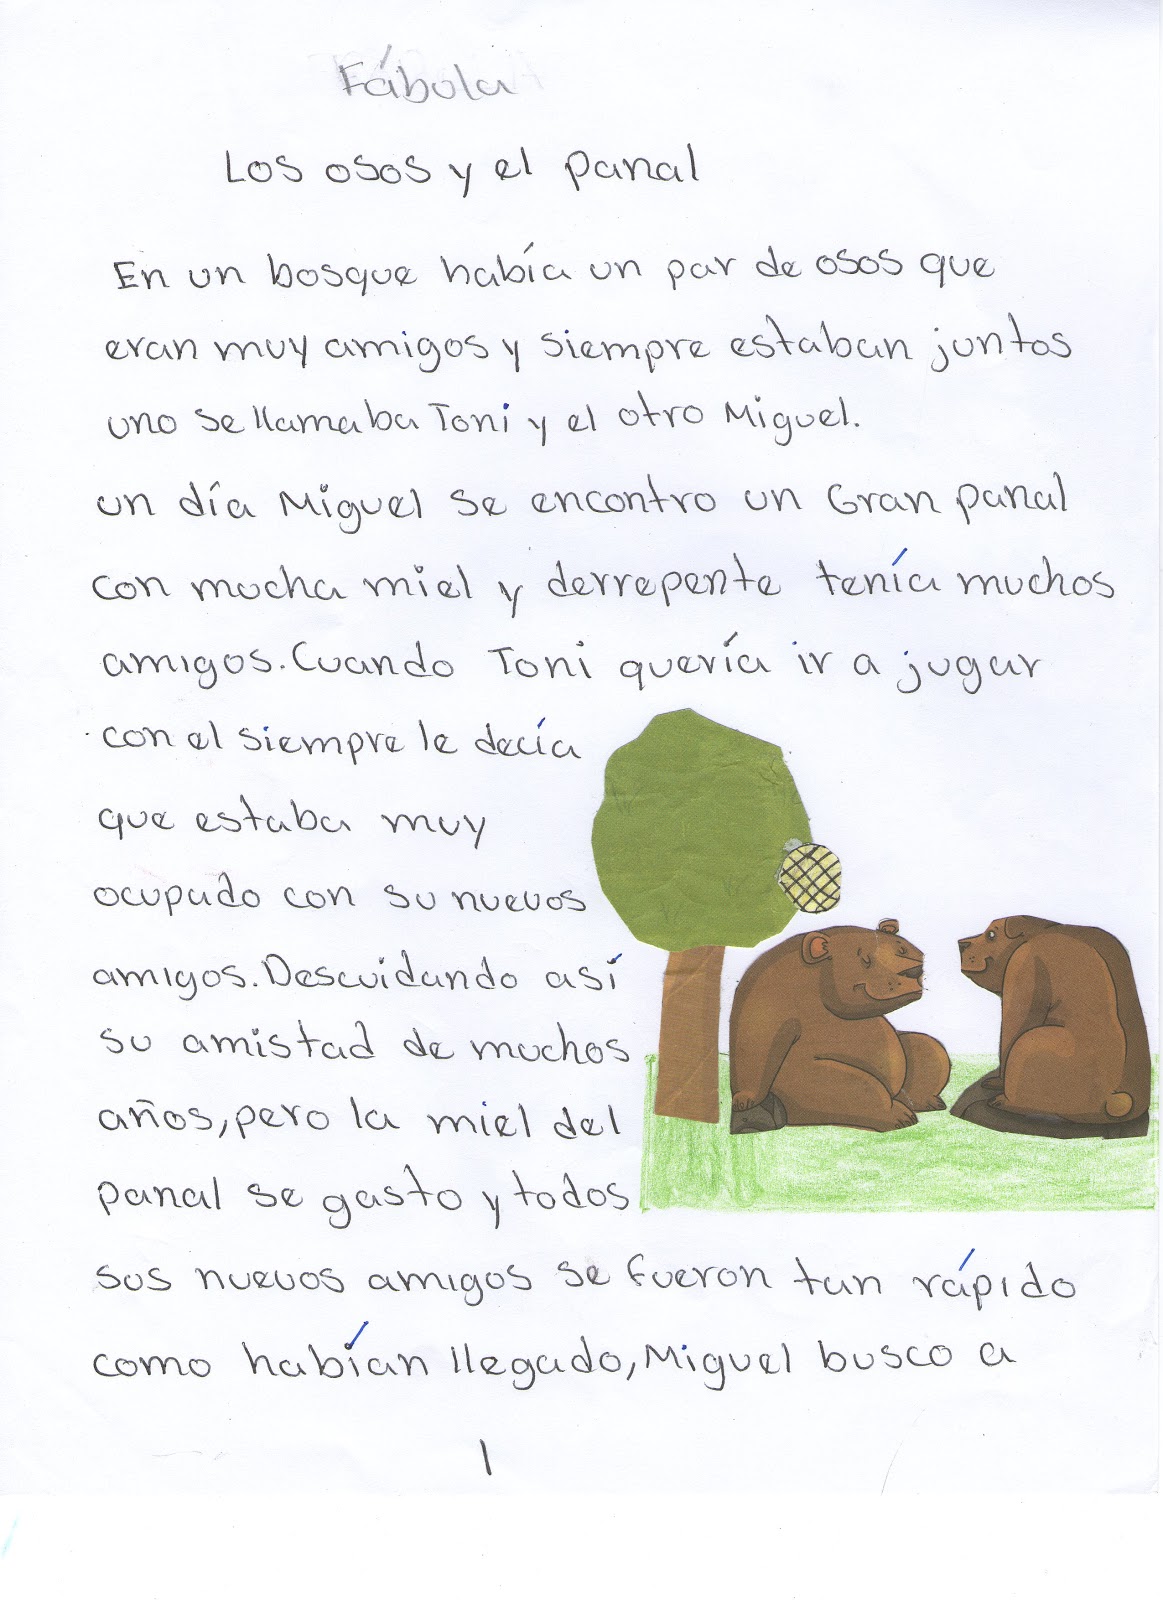 Fábula
Los osos y el panal
En un bosque había un par de osos que
eran muy amigos y siempre estaban juntos
uno se llamaba Toni y el otro Miguel.
un día Miguel se encontro un Gran panal
con mucha miel y derrepente tenía muchos
amigos. Cuando Toni quería ir a jugar
con el siempre le decía
que estaba muy
ocupado con su nuevos
amigos. Descuidando así
su amistad de muchos
años, pero la miel del
panal se gasto y todos
sus nuevos amigos se fueron tan rápido
como habían llegado, Miguel busco a
1